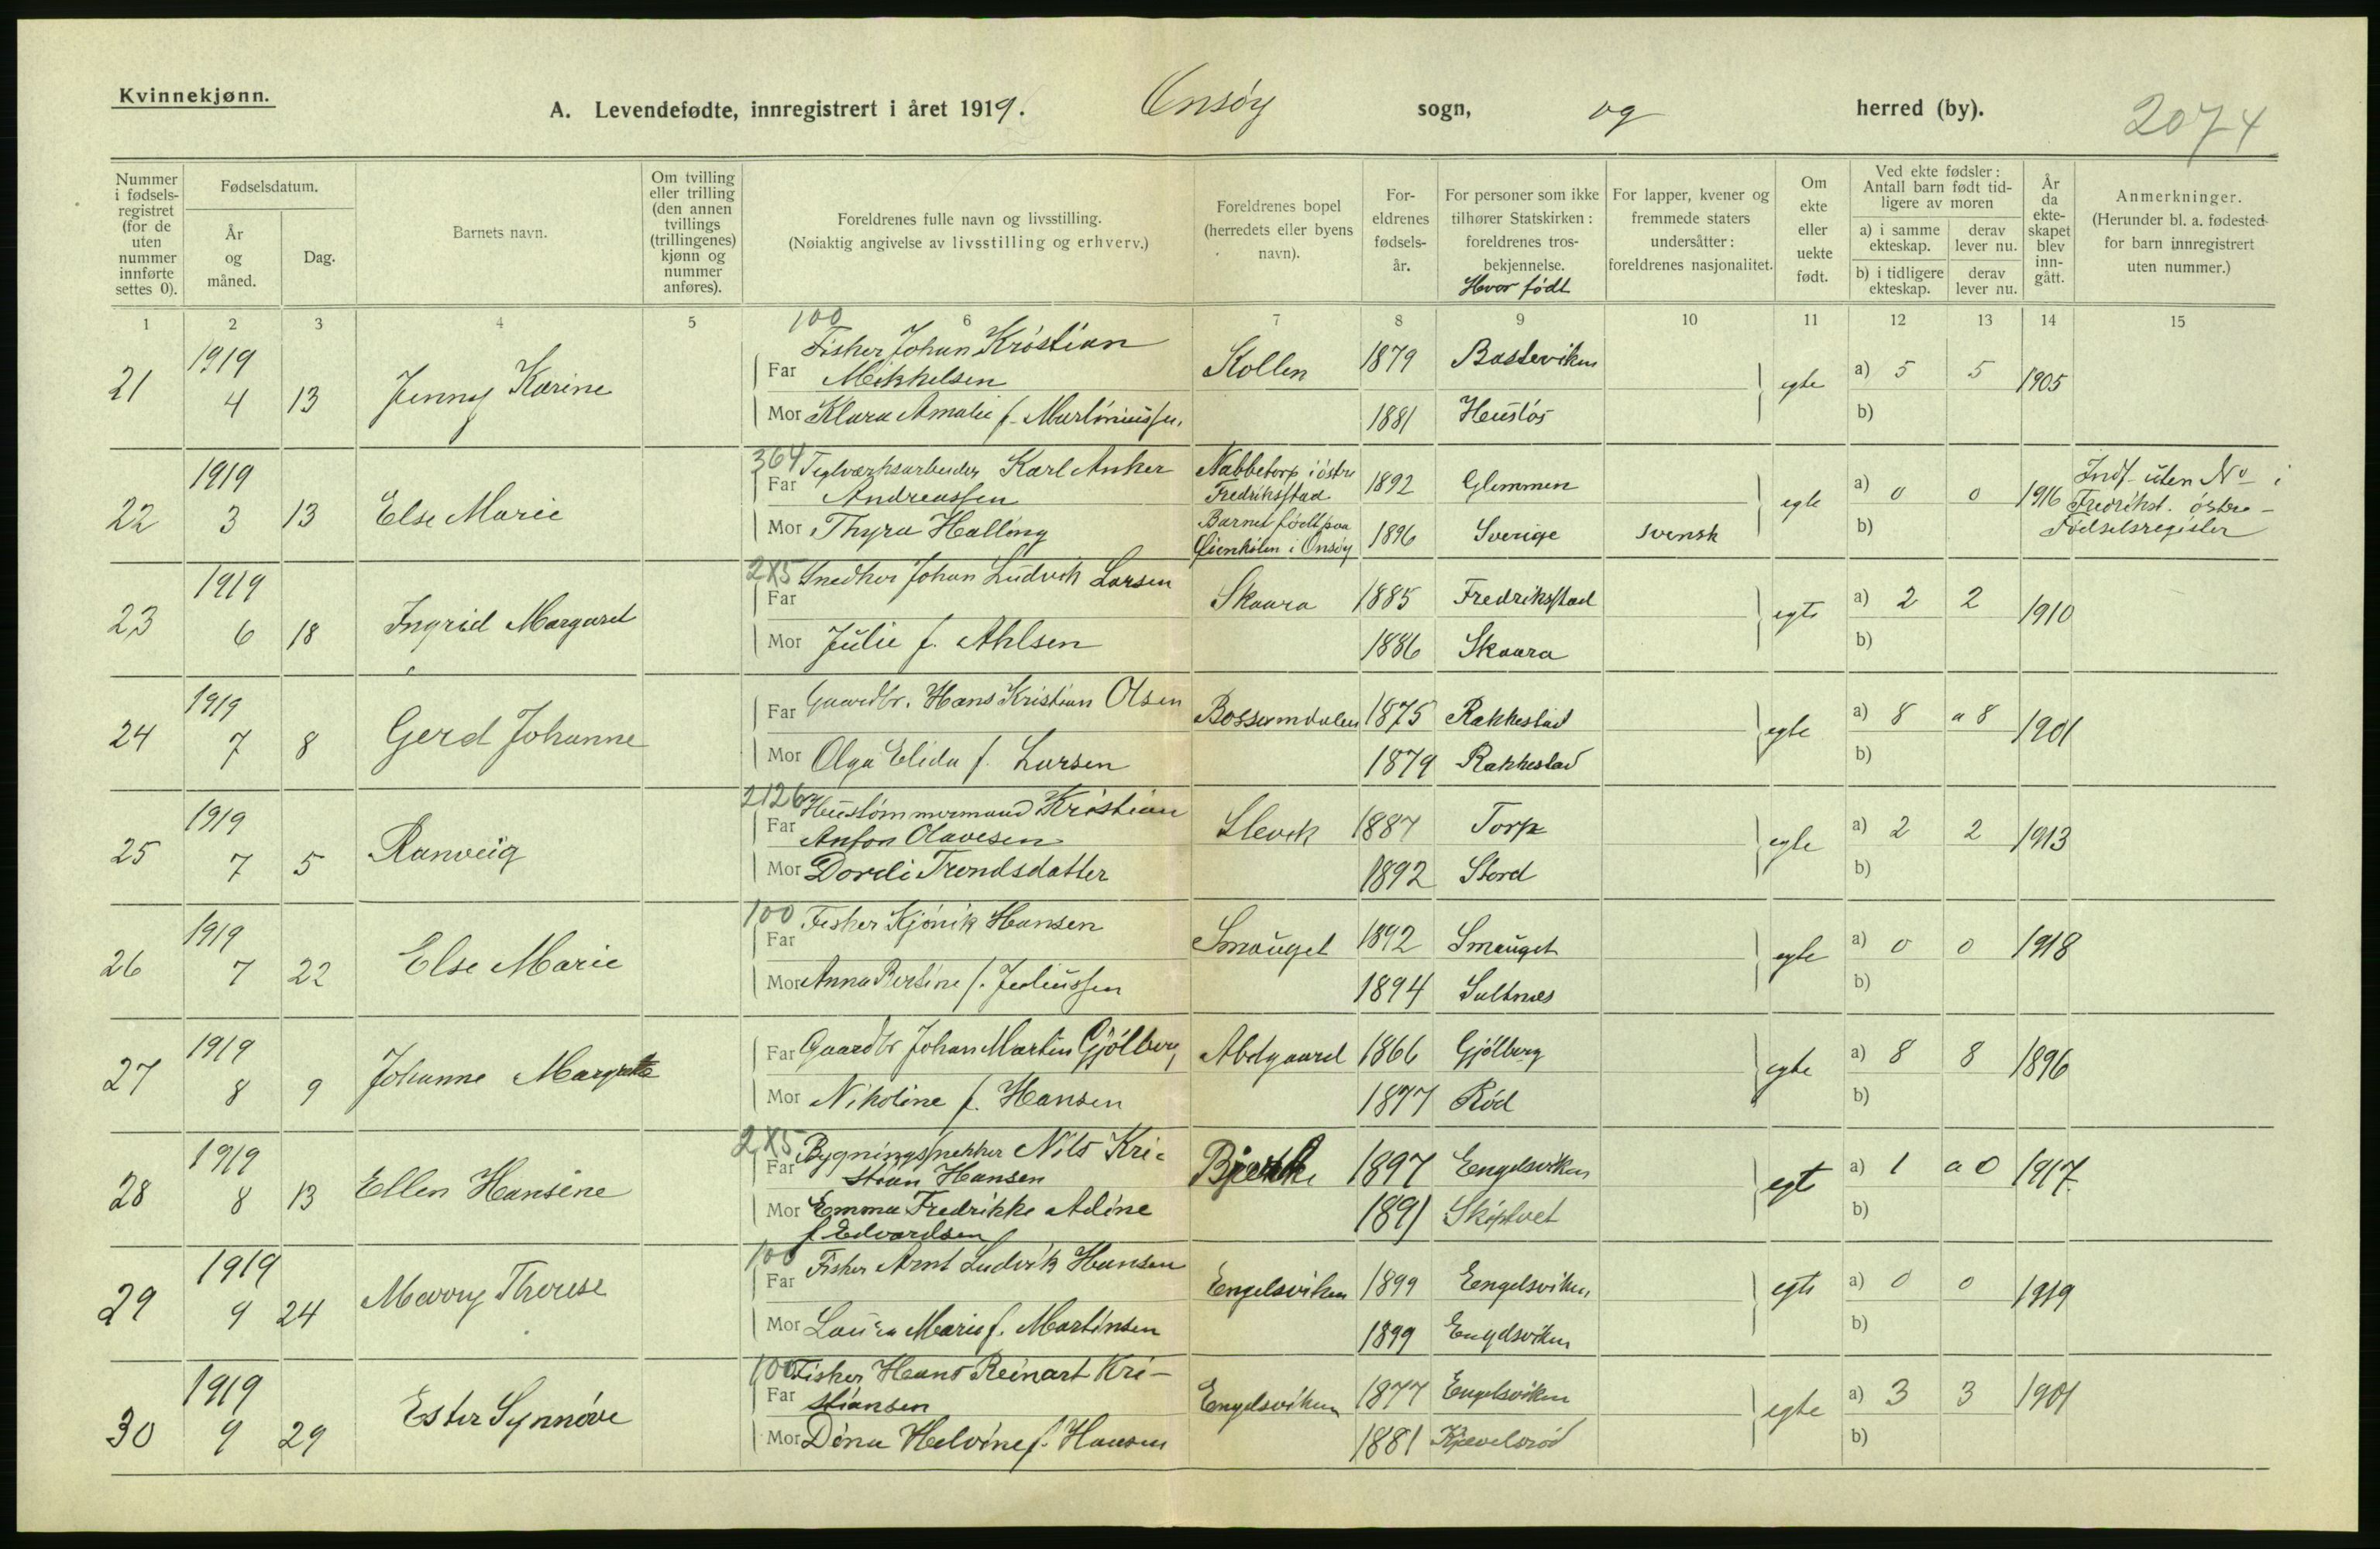 Kvinnekjønn.
A. Levendefødte, innregistrert i året 1919. Onsøy sogn, og herred (by). 2074
Nummer i fødsels-registret (for de uten nummer innførte settes 0).
Fødselsdatum.
År og måned.
Dag.
Barnets navn.
Om tvilling eller trilling (den annen tvillings (trillingenes) kjønn og nummer anføres).
Foreldrenes fulle navn og livsstilling.
(Nøiaktig angivelse av livsstilling og erhverv.)
Foreldrenes bopel (herredets eller byens navn).
For-eldrenes fødsels-år.
For personer som ikke tilhører Statskirken: foreldrenes tros-bekjennelse.
Hvor født
For lapper, kvener og fremmede staters undersåtter: foreldrenes nasjonalitet.
Om ekte eller uekte født.
Ved ekte fødsler: Antall barn født tid-ligere av moren
a) i samme ekteskap. derav lever nu.
b) i tidligere ekteskap. derav lever nu.
År da ekte-skapet blev inn-gått.
Anmerkninger.
(Herunder bl. a. fødested for barn innregistrert uten nummer.)
1 2 3 4 5 6 7 8 9 10 11 12 13 14 15
21 1919 4 13 Jenny Karine
100 Far Fisker Johan Kristian
Mikkelsen Kollen 1879 Basteviken egte a) 5 5 1905
Mor Klara Amalie f. Martiniussen 1881 Hustös b)
22 1919 3 13 Else Marie
364 Far Teglværksarbeider Karl Anker
Andreassen Nabbetorp i östre
Fredriksstad 1892 Glemmen egte a) 0 0 1916 Indf. uten No i
Fredrikst. östre
Fødselsregister
Mor Thyra Halling Barnet født paa
i Onsøy 1896 Sverige svensk b)
23 1919 6 18 Ingrid Margaret
285 Far Snedker Johan Ludvik Larsen Skaara 1885 Fredriksstad egte a) 2 2 1910
Mor Julie f. Ahlsen 1886 Skaara b)
24 1919 7 8 Gerd Johanne
Far Gaardbr. Hans Kristian Olsen Bossumdalen 1875 Rakkestad egte a) 8 a 8 1901
Mor Olga Elida f. Larsen 1879 Rakkestad b)
25 1919 7 5 Ranveig
2126 Far Hustömmermand Kristian
Anton Olavesen Slevik 1887 Torp egte a) 2 2 1913
Mor Dordi Trondsdatter 1892 Stord b)
26 1919 7 22 Else Marie
100 Far Fisker Kjönik Hansen Smauget 1892 Smauget egte a) 0 0 1918
Mor Anna Bertine f. Juliussen 1894 Saltnes b)
27 1919 8 9 Johanne Margrete
Far Gaardbr Johan Martin Gjölberg Abdgaard 1866 Gjölberg egte a) 8 8 1896
Mor Nikoline f. Hansen 1877 Röd b)
28 1919 8 13 Ellen Hansine
285 Far Bygningssnekker Nils Kri-
stian Hansen Bjerke 1897 Engelsviken egt a) 1 a 0 1917
Mor Emma Fredrikke Adine
f Edvardsen 1891 Skiptvet b)
29 1919 9 24 Marry Therese
100 Far Fisker Arnt Ludvik Hansen Engelsviken 1899 Engelsviken egte a) 0 0 1919
Mor Laura Marie f. Martinsen 1899 Engelsviken b)
30 1919 9 29 Ester Synnöve
100 Far Fisker Hans Reinart Kri-
stiansen Engelsviken 1877 Engelsviken egte a) 3 3 1901
Mor Dina Helvine f. Hansen 1881 b)